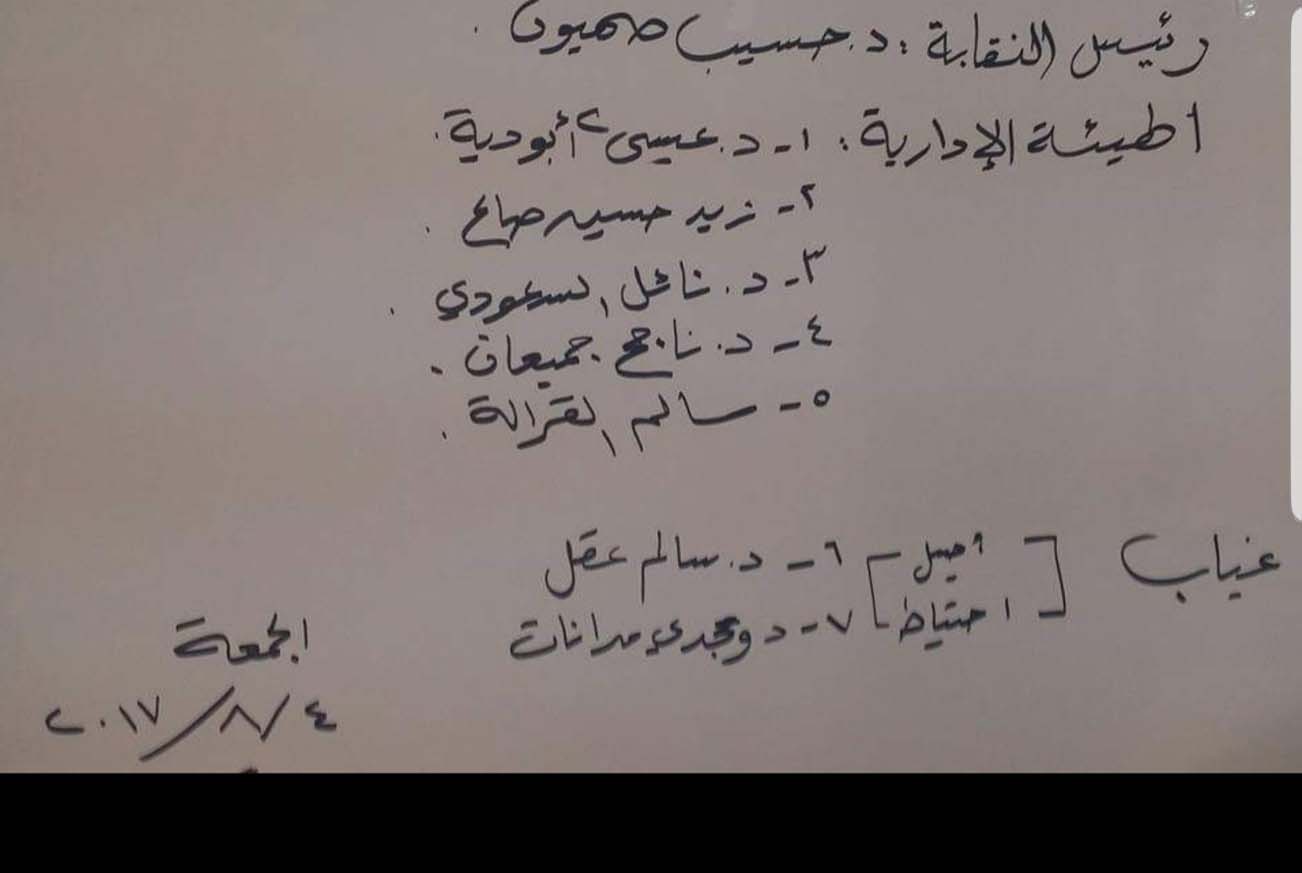 رئيس النقابة : د. حسيب صهيون .
الهيئة الإدارية : ١- د. عيسى أبودية .
٢- زيد حسين صالح .
٣- د. نائل السعودي .
٤- د. ناجح جميعان .
٥- سالم القرالة .
غياب [ أصيل [ ٦- د. سالم عقل
احتياط [ ٧- د وجدي مدانات
الجمعة
٤/٨/٢٠١٧